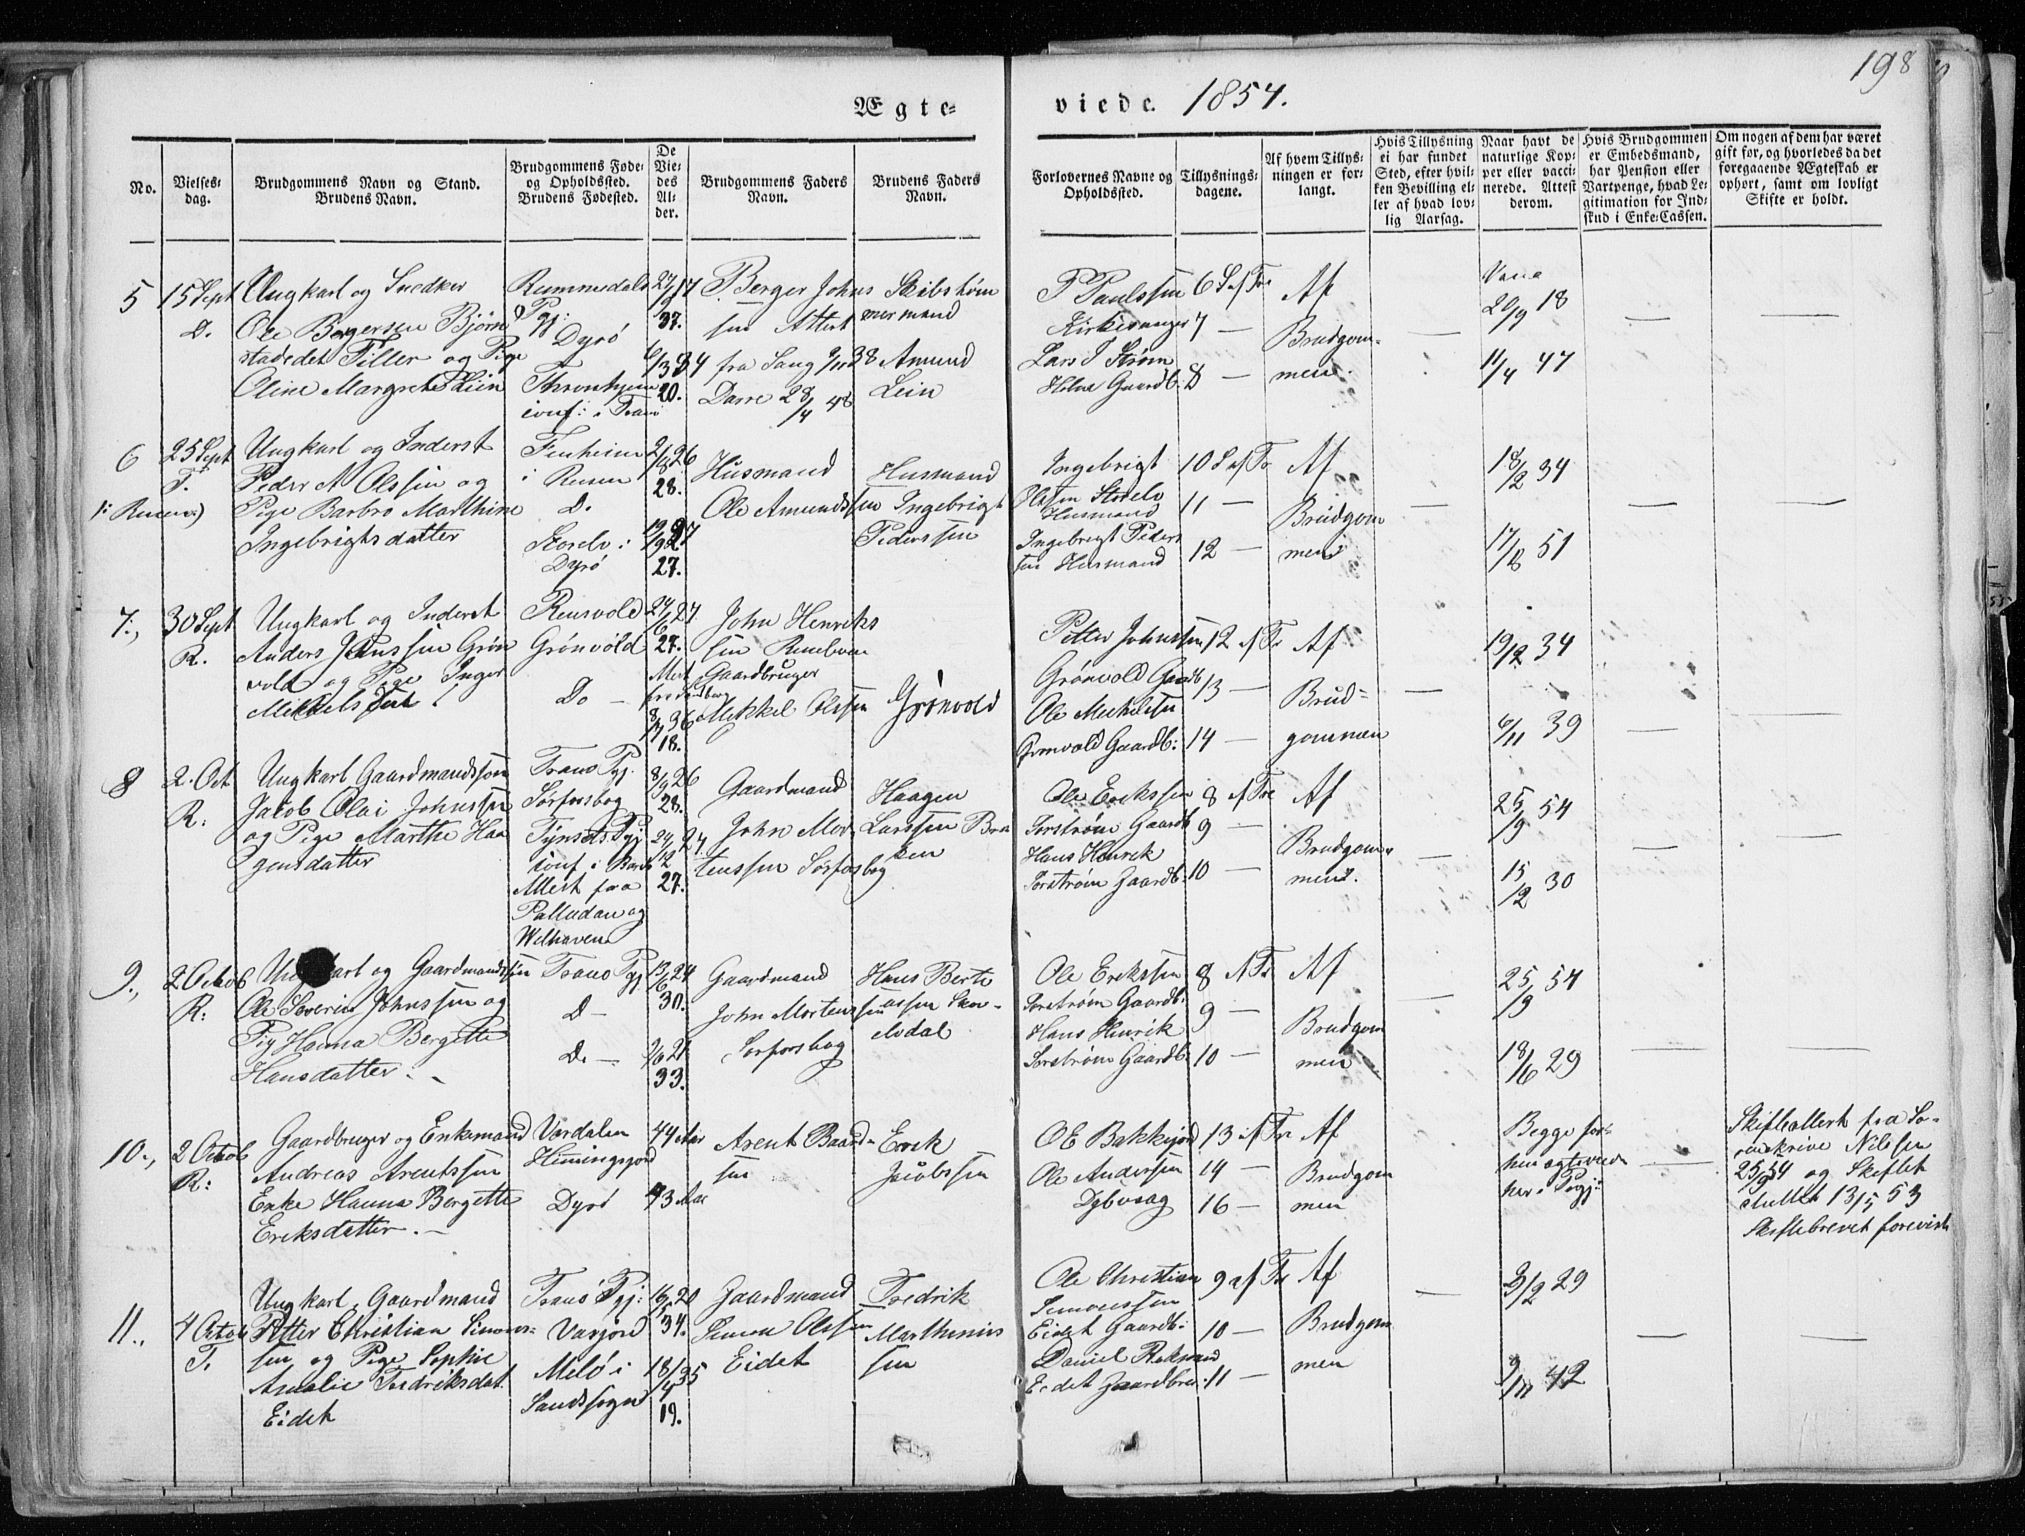 198
Ægte-
viede. 1854.
No.
Vielses-
dag.
Brudgommens Navn og Stand.
Brudens Navn.
Brudgommens Føde-
og Opholdsted.
Brudens Fødested.
De
Vie-
des
Al-
der.
Brudgommens Faders
Navn.
Brudens Faders
Navn.
Forlovernes Navne og
Opholdssted.
Tillysnings-
dagene.
Af hvem Tillys-
ningen er for-
langt.
Hvis Tillysning
ei har fundet
Sted, efter hvil-
ken Bevilling el-
ler af hvad lov-
lig Aarsag.
Naar havt de
naturlige Kop-
per eller vacci-
nerede. Attest
derom.
Hvis Brudgommen
er Embedsmand,
har Pension eller
Vartpenge, hvad Le-
gitimation for Ind-
skud i Enke-Cassen.
Om nogen af dem har været
gift før, og hvorledes da det
foregaaende Ægteskab er
ophørt, samt om lovligt
Skifte er holdt.
5
15 Sept
D.
Ungkarl og Snedker
Ole Bergersen Bjørn
stadedet Tiller og Pige
Oline Margrete Lein
Rummedals
Pgj:
Dyrø
Thronhjem
conf: i Tranø
37.
20.
Berger Johns
sen Attest
fra Saug
Darre 28/4 48
Skibstøm
mermand
Amund
Lein
P Paulssen
Kirkesanger
Lars J Strøm
Gaardb.
6 S ef Tr
7 —
8 —
Af
Brudgom-
men.
20/9 18
11/4 47
6
25 Sept
T.
Ungkarl og Inderst
Peder A Olssen og
Pige Barbro Marthine
Ingebrigtsdatter
i Rusen
D.
Storelv i
Dyrø
28.
27.
Husmand
Ole Amundssen
Husmand
Ingebrigt
Pederssen
Ingebrigt
Olssen Storelv
Husmand
Ingebrigt Peders
sen Husmand
10 S ef Tr
11 —
12 —
Af
Brudgom
men
18/2 34
17/8 51
7.,
30 Sept
R.
Ungkarl og Inderst
Anders Johnssen Grøn
vold og Pige Inger
Mikkelsdat
Rensvold
Grønvold
Do —
24/6 27
27.
18.
John Henriks
sen
Gaardbruger
Mikkel Olssen
Grønvold
Petter Johnssen
Grønvold Gaardb
Ole Mickelssen
Grønvold Gaardb:
12 ef Tr
13 —
14 —
Af
Brud-
gommen
19/2 34
6/11 39
8
2. Oct
R.
Ungkarl Gaardmandssøn
Jacob Olai Johnssen
og Pige Marthe Haa
gensdatter
Tranø Pgj.
Sørforsbog
Tynsets Pgj
conf: i Bardo
Attest fra
Palludan og
Welhaven
8/9 26
28.
27.
Gaardmand
John Mor-
tenssen Sørforsbog
Haagen
Larssen Bra
ken
Ole Erikssen
Sorstrøm Gaardb
Hans Henrik
Sorstrøm Gaardb.
8 ef Tr
9 —
10 —
Af
Brudgom-
men.
25/9 54
15/2 30
9.,
2 Octob
R:
Ungkarl og Gaardmandssøn
Ole Severin Johnssen og
Pig Hanna Bergette
Hansdatter.
Tranø Pgj
D —
D. —
13/6 24
30.
33.
Gaardmand
John Mortenssen
Sørforsbog
Hans Bert
Ole Erikssen
Sorstrøm Gaardb:
Hans Henrik
Sorstrøm Gaardb:
8 ef Tr
9 —
10 —
Af
Brudgom
men
25/9 54
18/6 29
10.,
2 Octob
R:
Gaardbruger og Enkemand
Andreas Arentssen
Enke Hanna Bergette
Eriksdatter. —
Værdalen
Hemingsjord
Dyrø
44 Aar
43 Aar
Arent Baard-
sen
Erik
Jacobssen
OE Bakkejord
Ole Anderssen
Dybvaag
13 ef Tr
14 —
16 —
Af
Brudgom
men
Begge for-
hen ægteviede
her i Pgj:
Skifteattest fra So-
renskriver Nilssen
25/9 54 og Skiftet
sluttet 13/5 53
Skiftebrevet forevist
11.,
4 Octob
T.
Ungkarl, Gaardmand
Petter Christian Simons-
sen og Pige Sophie
Amalie Fredriksdat.
Eidet
Tranø Pgj:
Varjord
Melø i
Sandssogn
16/5 20
34.
18/4 35
19.
Gaardmand
Simon Olssen
Eidet
Fredrik
Marthinus
sen
Ole Christian
Simonssen
Eidet Gaardb:
Daniel
Eidet Gaardbru:
9 ef Tr
10 —
11 —
Af
Brudgom
men
3/2 29
9/11 42